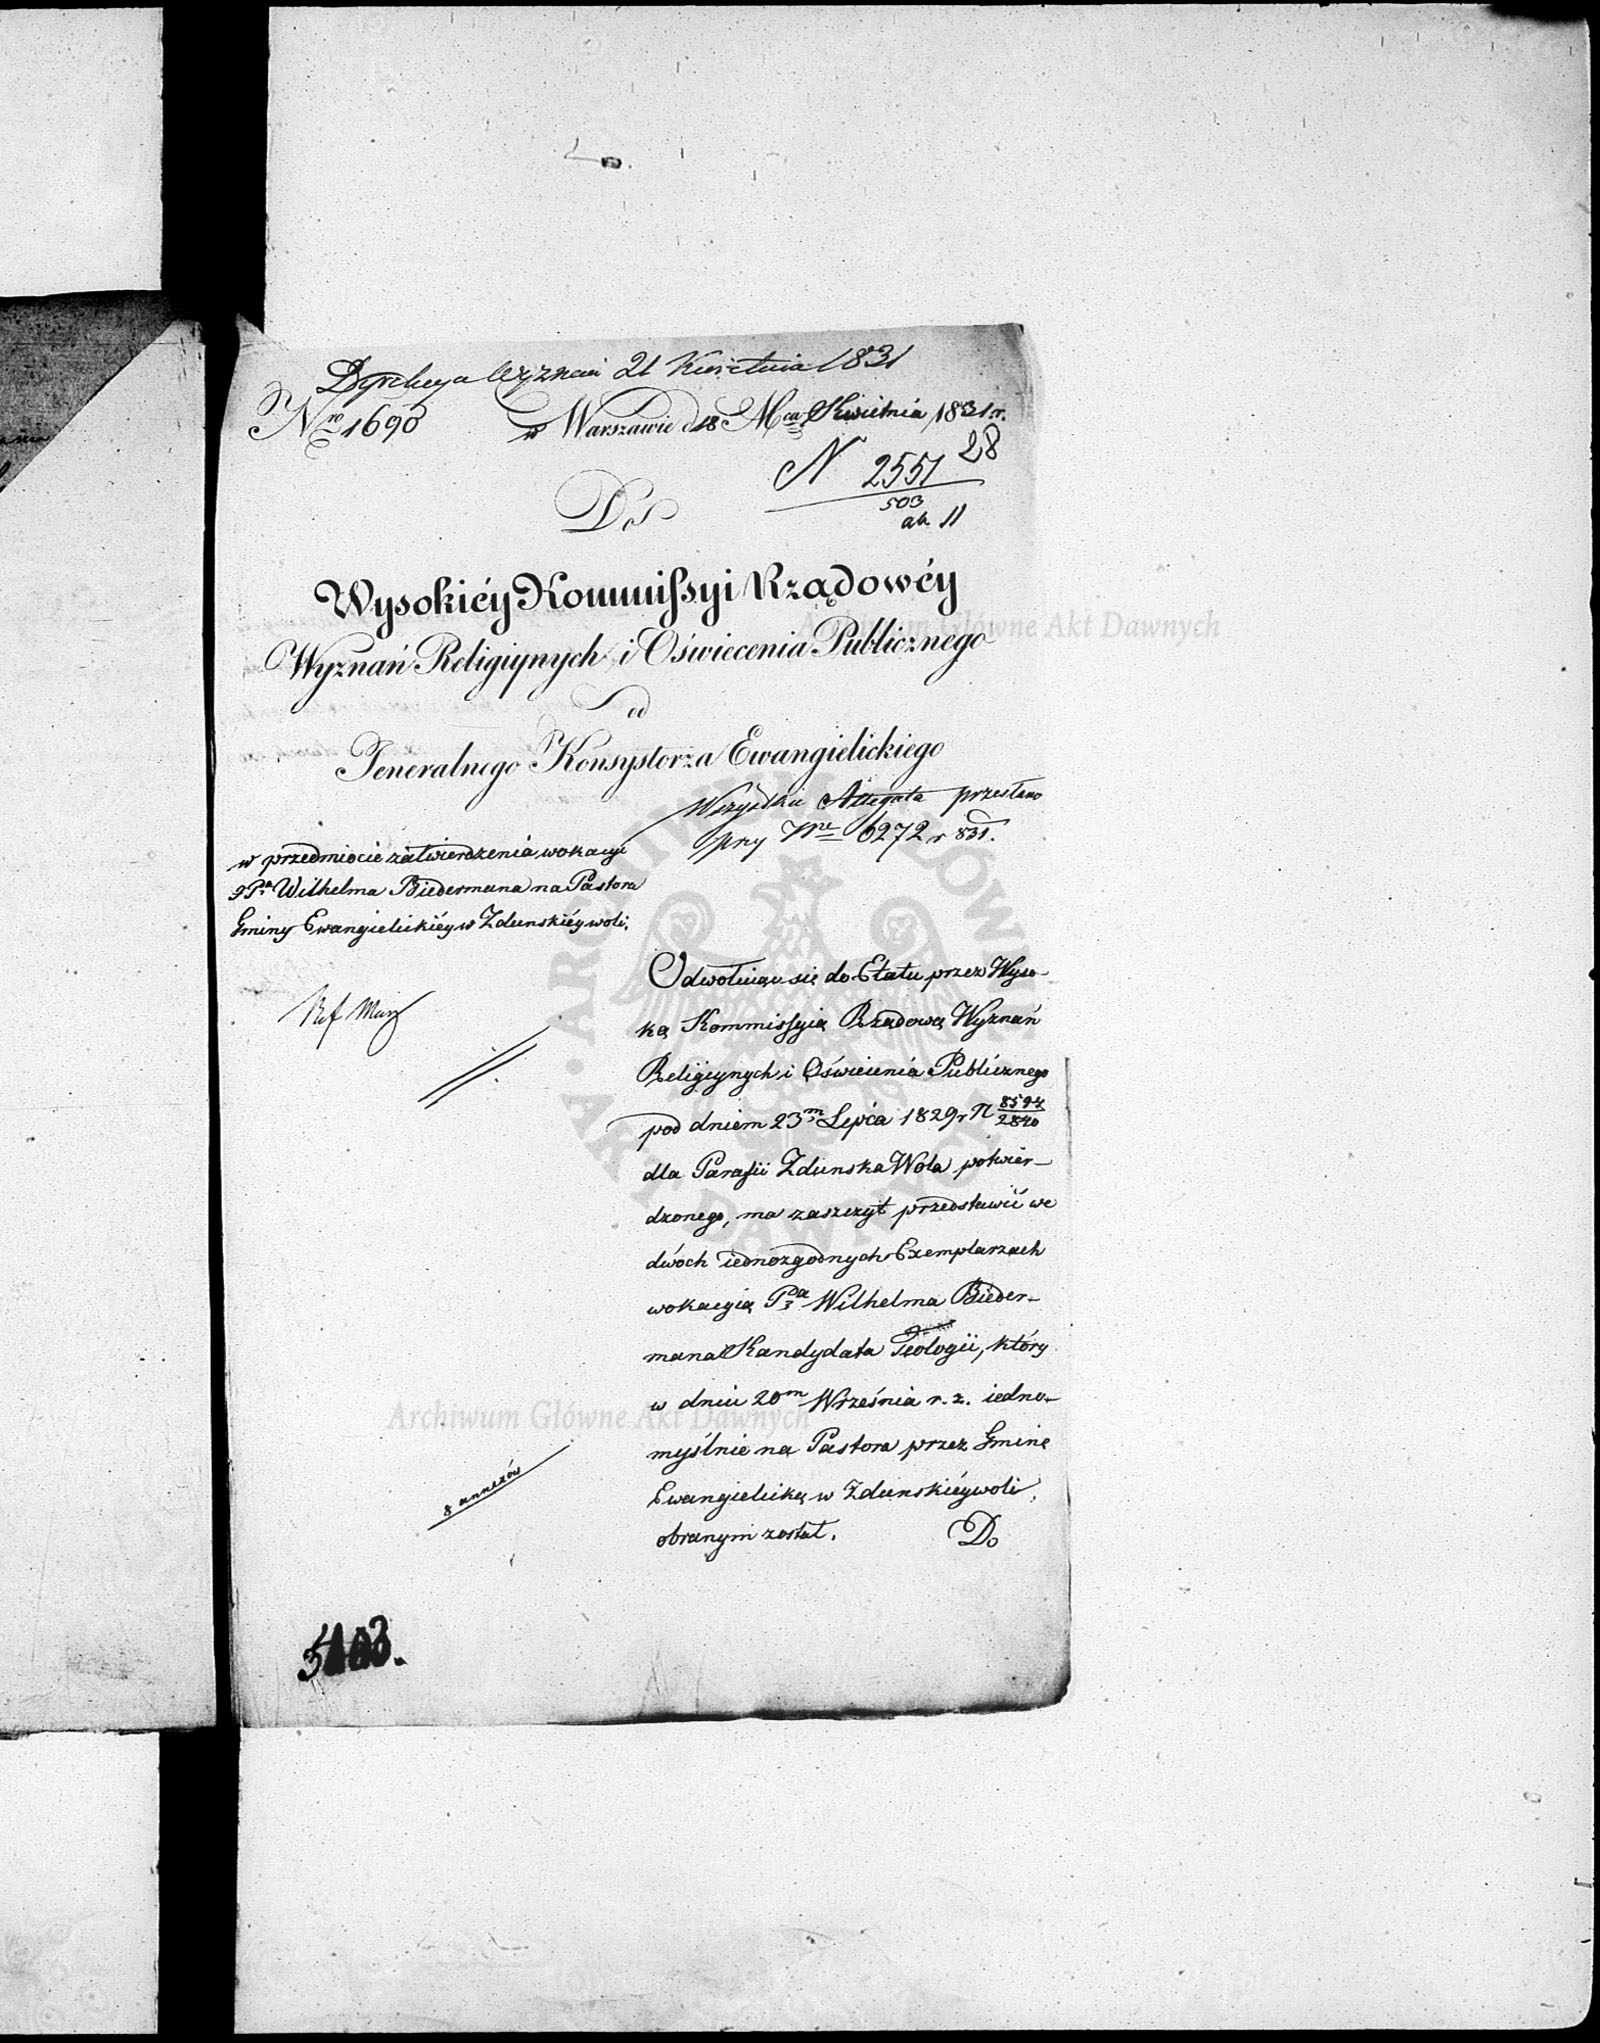 Dyrekcya Wyznań 21 Kwietnia 1831
Nro 1693 w Warszawie d 18 Mca Kwietnia 1831 r.
28
N 2551
503
ab. 11
Do
Wysokiéy Kommissyi Rządowéy
Wyznań Religiynych i Oświecenia Publicznego
od
Jeneralnego Konsystorza Ewangielickiego
Wszystkie Allegata przesłano
przy Nrze 6272 r 831.
w przedmiocie zatwierdzenia wokacyi
Pa Wilhelma Biedermana na Pastora
Gminy Ewangielickiéy w Zdunskiéywoli.
Odwołuiąc się do Etatu przez Wyso-
ką Kommissyią Rządową Wyznań
Religiynych i Oświecenia Publicznego
pod dniem 23m Lipca 1829 r N 8594/2840
dla Parafii Zdunska Wola potwier-
dzonego, ma zaszczyt przedstawić we
dwóch iednozgodnych Exemplarzach
wokacyią Pa Wilhelma Bieder-
mana Kandydata Teologii, który
w dniu 20m Września r. z. iedno-
myślnie na Pastora przez Gminę
Ewangielicką w Zdunskiéywoli
obranym został.
Do
8 annexów
Archiwum Główne Akt Dawnych
Archiwum Główne Akt Dawnych
ARCHIWUM GŁÓWNE AKT DAWNYCH